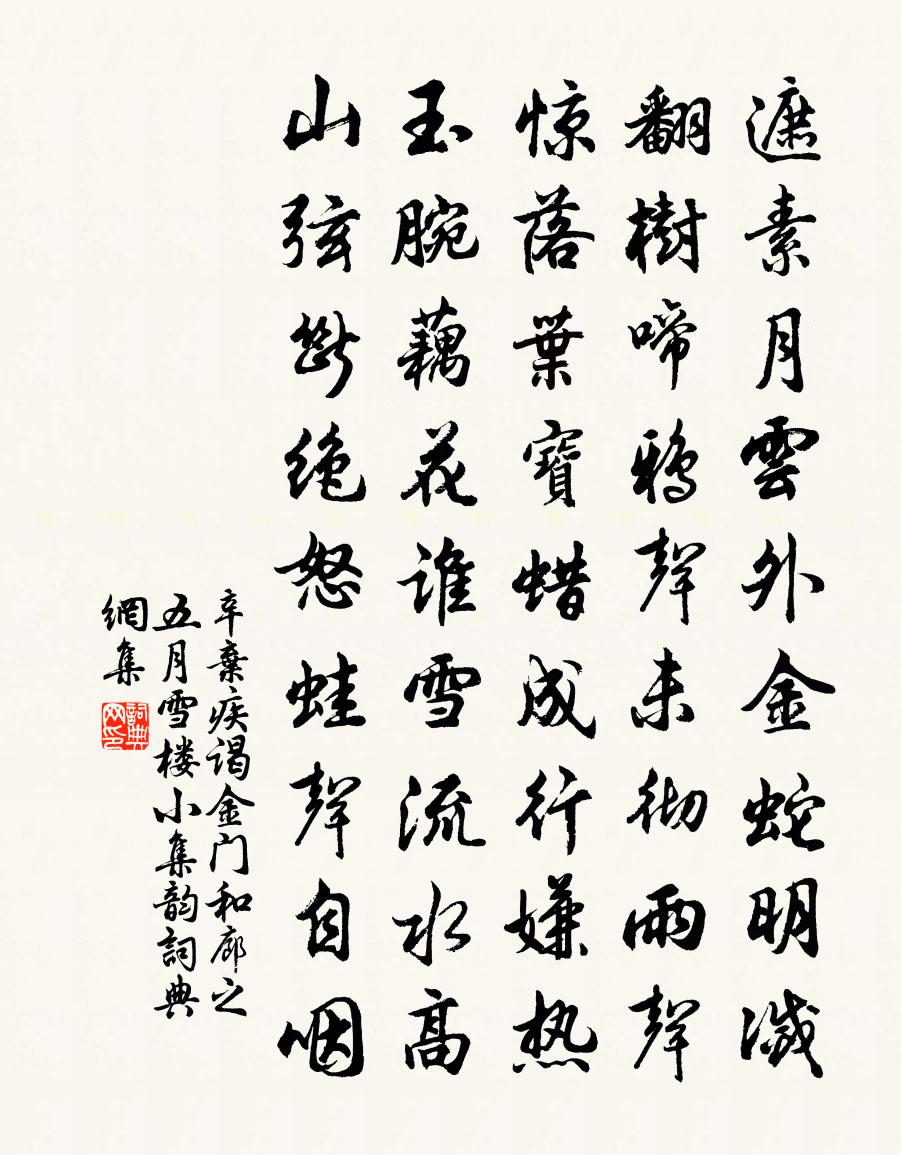 遮素月雲外金蛇明滅
翻樹啼鴉聲未彻雨聲
惊落葉寶蜡成行嫌热
玉腕藕花谁雪流水高
山弦斷絶怒蛙聲自咽
辛棄疾谒金门和廊之
五月雪楼小集韵詞典
網集
詞典网印